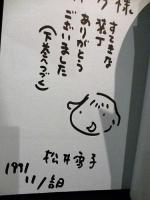 様
すてきな
装丁
ありがとう
ございました
(下巻へつづく)
松井雪子
1991
11/